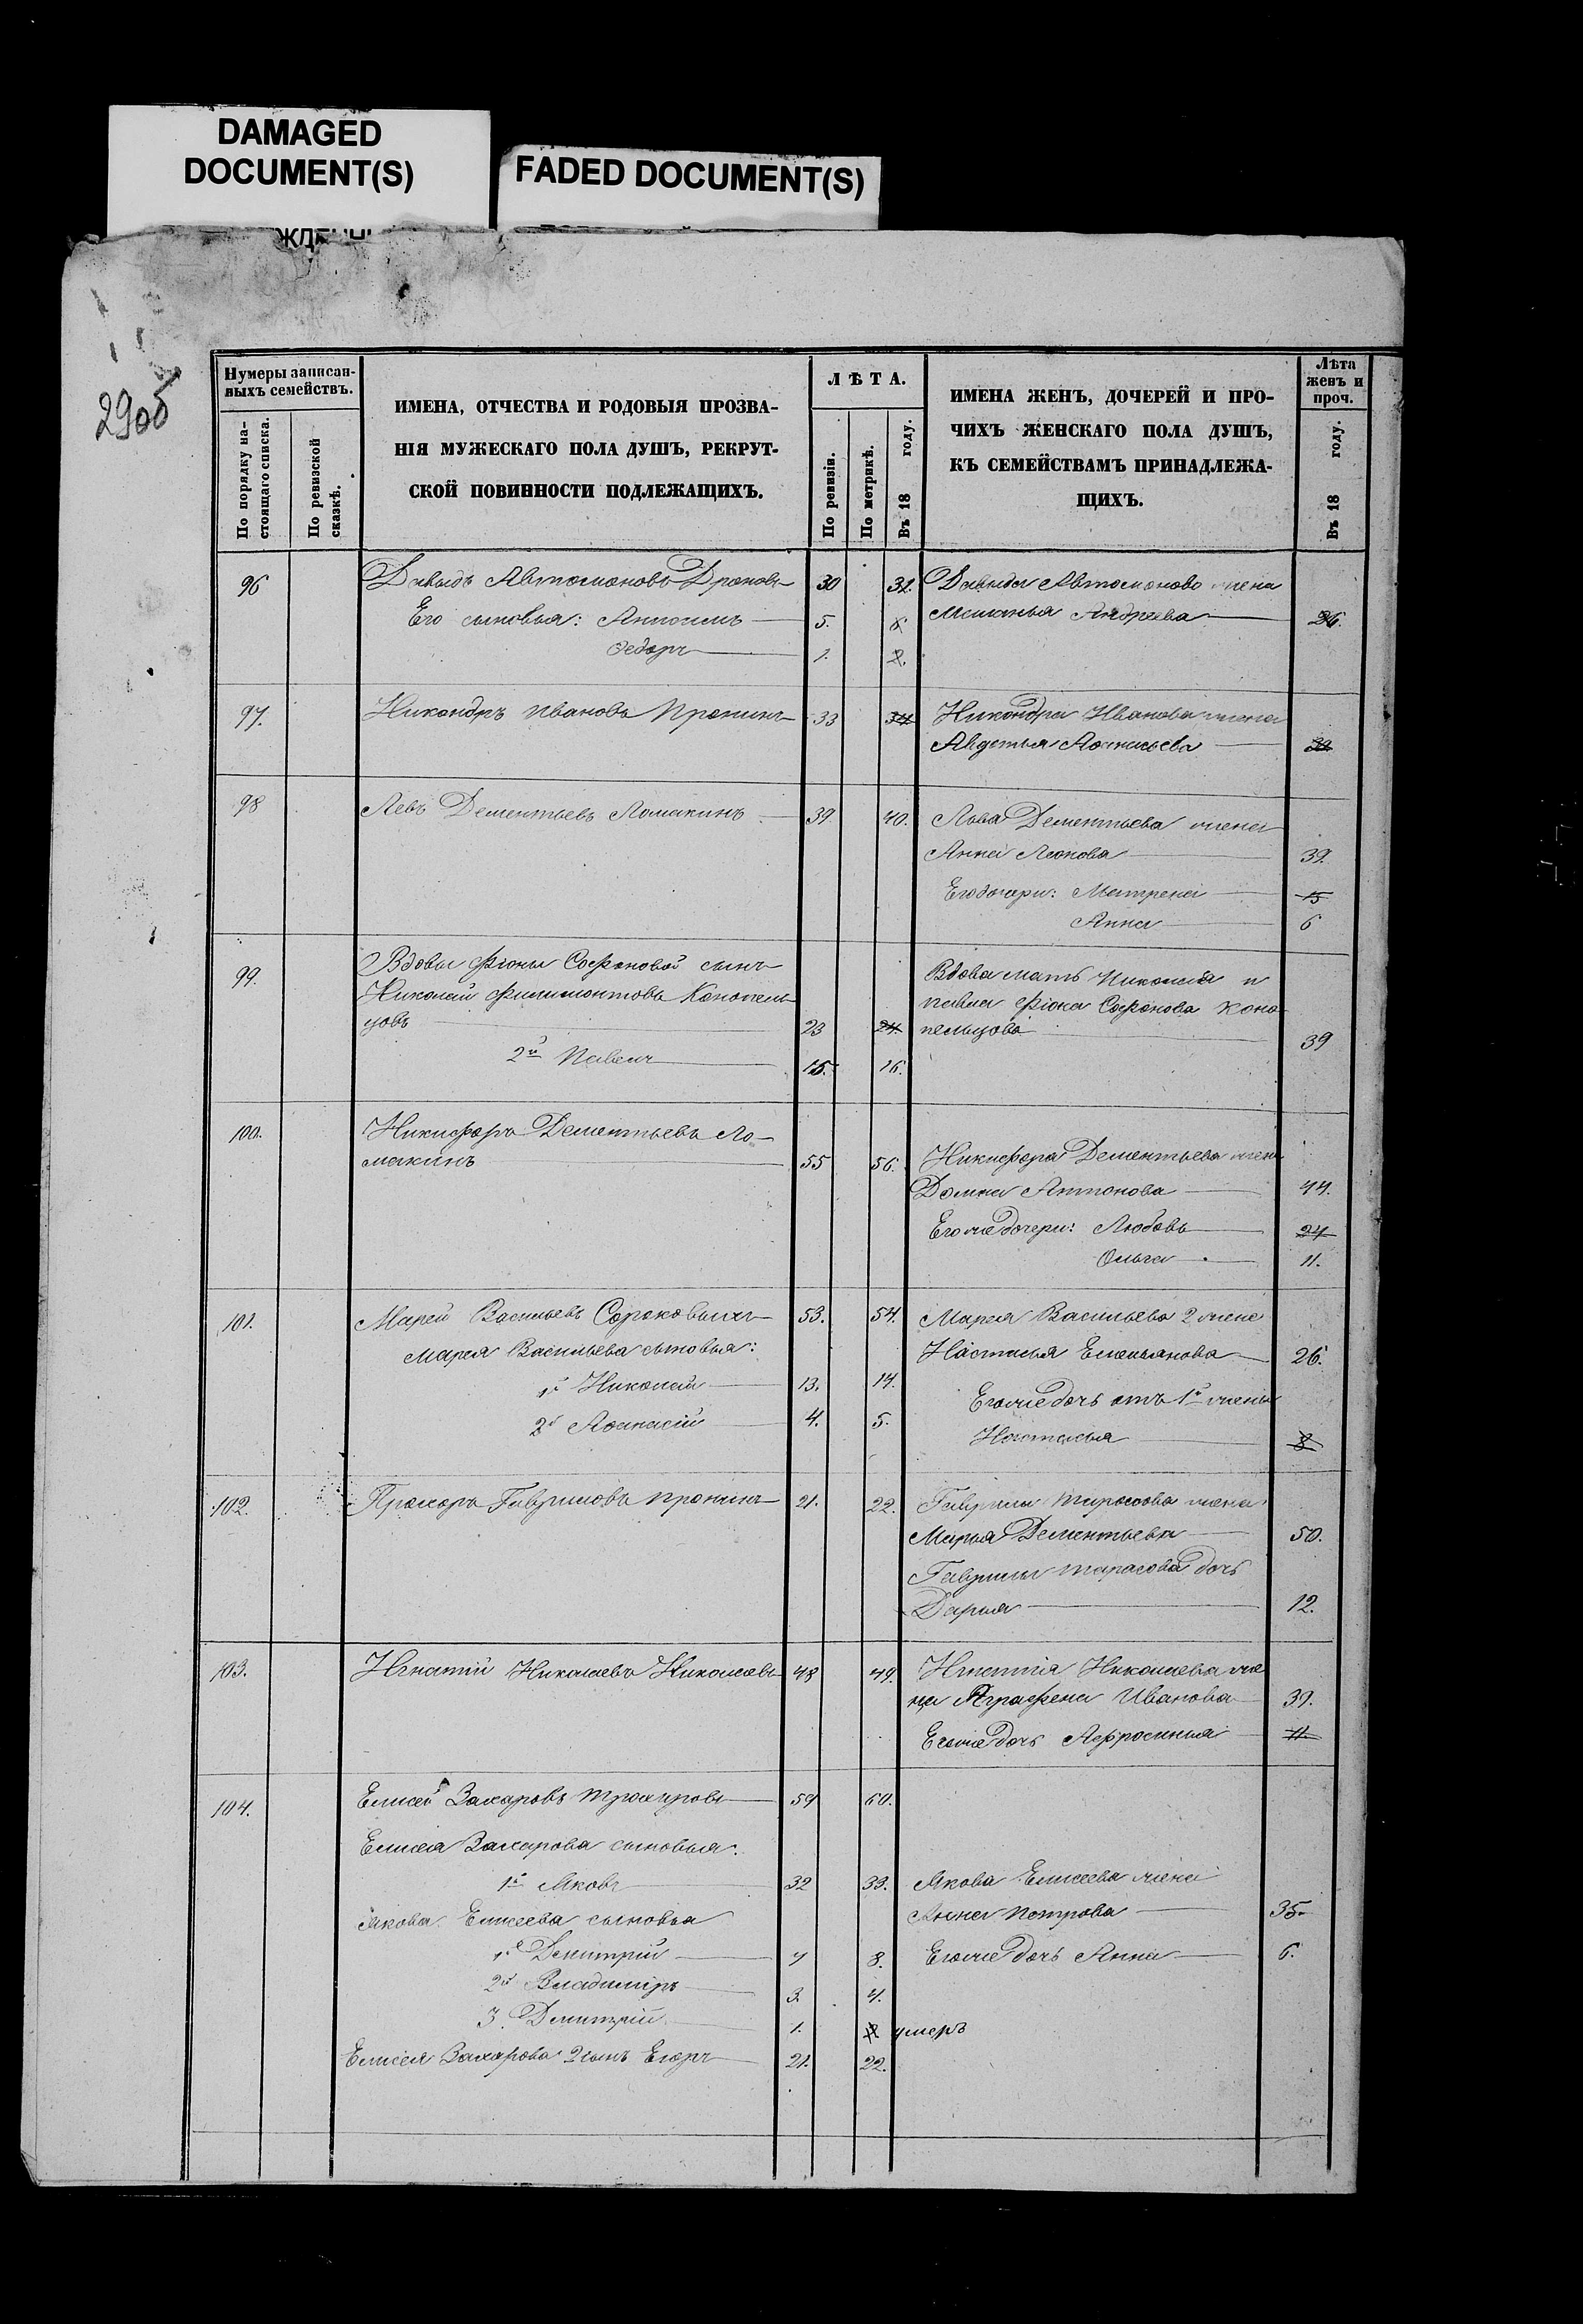 DAMAGED
DOCUMENT(S)
FADED DOCUMENT(S)
29об
Нумеры записан-
ныхъ семействъ.
По порядку на-
стоящаго списка.
По ревизской
сказкѣ.
ИМЕНА, ОТЧЕСТВА И РОДОВЫЯ ПРОЗВА-
НІЯ МУЖЕСКАГО ПОЛА ДУШЪ, РЕКРУТ-
СКОЙ ПОВИННОСТИ ПОДЛЕЖАЩИХЪ.
ЛѢТА.
По ревизіи.
По метрикѣ.
Въ 18 году.
ИМЕНА ЖЕНЪ, ДОЧЕРЕЙ И ПРО-
ЧИХЪ ЖЕНСКАГО ПОЛА ДУШЪ,
КЪ СЕМЕЙСТВАМЪ ПРИНАДЛЕЖА-
ЩИХЪ.
Лѣта
женъ и
проч.
Въ 18 году.
96 Давыдъ Автомоновъ Дроновъ 30 31. Давыда Автомонова жена
Его сыновья: Антогимъ 5. 6 Меланья Андреева 26.
Федоръ 1. 2.
97. Никандръ Ивановъ Пронинъ 33 34 Никандра Иванова жена
Авдотья Афанасьева
98 Левъ Дементьевъ Ломакинъ 39. 40. Льва Дементьева жена
Анна Леонова 39.
Его дочери: Матрена 15
Анна 6
99. Вдовы Фіоны Софоновой сынъ Вдова мать Николая и
Николай Филимонтовъ Конопель- Павла Фіона Софонова Коно-
цовъ 23 24. пельцова 39
2й Павелъ 15. 16.
100. Никифоръ Дементьевъ Ло-
макинъ 55 56. Никифора Дементьева жена
Домна Антонова 44.
Его же дочери: Любовь 24
Ольга 11.
101. Марей Васильевъ Сороковыхъ 53. 54. Марея Васильева 2 жена
Марея Васильева сыновья: Настасья Емельянова 26.
1й Николай 13. 14. Его же дочь отъ 1й жены
2й Афанасій 4. 5. Настасья 8
102. Прохоръ Гавриловъ Пронинъ 21. 22. Гаврилы Тарасова жена
Марья Дементьева 50.
Гаврилы Тарасова дочь
Дарья 12.
103. Игнатій Николаевъ Николаевъ 48 49. Игнатія Николаева же-
на Аграфена Иванова 39.
Его же дочь Афросинья 11.
104. Елисей Захаровъ 59 60.
Елисея Захарова сыновья:
1й Яковъ 32 33. Якова Елисеева жена
Якова Елисеева сыновья Анна Петрова 35.
1й Дмитрій 7 8. Его же дочь Анна 6.
2й Владиміръ 3. 4.
3. Дмитрій 1. 2 умеръ
Елисея Захарова 2 сынъ Егоръ 21. 22.